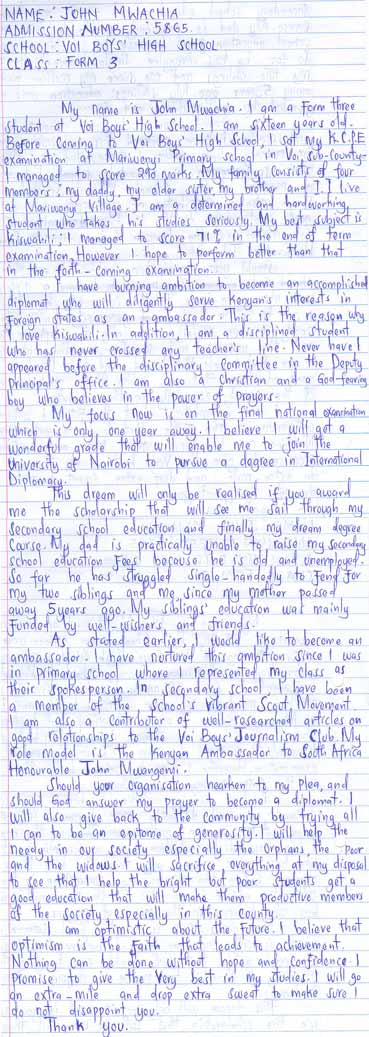 NAME: JOHN MWACHIA
ADMISSION NUMBER: 5865.
SCHOOL: VOI BOYS' HIGH SCHOOL
CLASS: FORM 3
My name is John Mwachia. I am a Form three
student at Voi Boys' High School. I am sixteen years old.
Before coming to Voi Boys' High School, I sat my K.C.P.E
examination at Mariwenyi Primary school in Voi, sub-County.
I managed to score 290 marks. My family consists of four
members; my daddy, my elder sister, my brother and I. I live
at Mariwenyi Village. I am a determined and hardworking,
student, who takes his studies seriously. My best subject is
Kiswahili; I managed to score 71% in the end of term
examination, However I hope to perform better than that
in the forth-coming examination.
I have burning ambition to become an accomplished
diplomat, who will diligently serve Kenyan's interests in
Foreign states as an ambassador. This is the reason why
I love Kiswahili. In addition, I am a disciplined student
who has never crossed any teacher's line. Never have I
appeared before the disciplinary committee in the Deputy
Principal's office. I am also a Christian and a God-fearing
boy who believes in the power of prayers.
My focus now is on the final national examination
which is only, one year away. I believe I will get a
wonderful grade that will enable me to join the
University of Nairobi to pursue a degree in International
Diplomacy.
This dream will only be realised if you award
me the scholarship that will see me sail through my
Secondary school education and finally my dream degree
Course. My dad is practically unable to raise my Secondary
school education Fees because he is old and unemployed.
So far he has struggled single-handedly to fend for
my two siblings and me, since my mother passed
away 5 years ago. My siblings' education was mainly
funded by well-wishers, and friends.
As stated earlier, I would like to become an
ambassador. I have nurtured this ambition since I was
in primary school where I represented my class as
their spokesperson. In secondary school, I have been
a member of the school's vibrant Scout Movement.
I am also a contributor of well-researched articles on
good relationships to the Voi Boys' Journalism Club. My
role model is the Kenyan Ambassador to South Africa
Honourable John Mwangemi.
Should your organisation hearken to my plea, and
should God answer my prayer to become a diplomat. I
will also give back to the community by trying all
I can to be an epitome of generosity. I will help the
needy in our society especially the orphans, the poor
and the widows. I will sacrifice everything at my disposal
to see that I help the bright but poor students get a
good education that will make them productive members
of the society especially in this county.
I am optimistic about the future. I believe that
optimism is the Faith that leads to achievement.
Nothing can be done without hope and confidence. I
promise to give the very best in my studies. I will go
an extra-mile and drop extra sweat to make sure I
do not disappoint you.
Thank you.